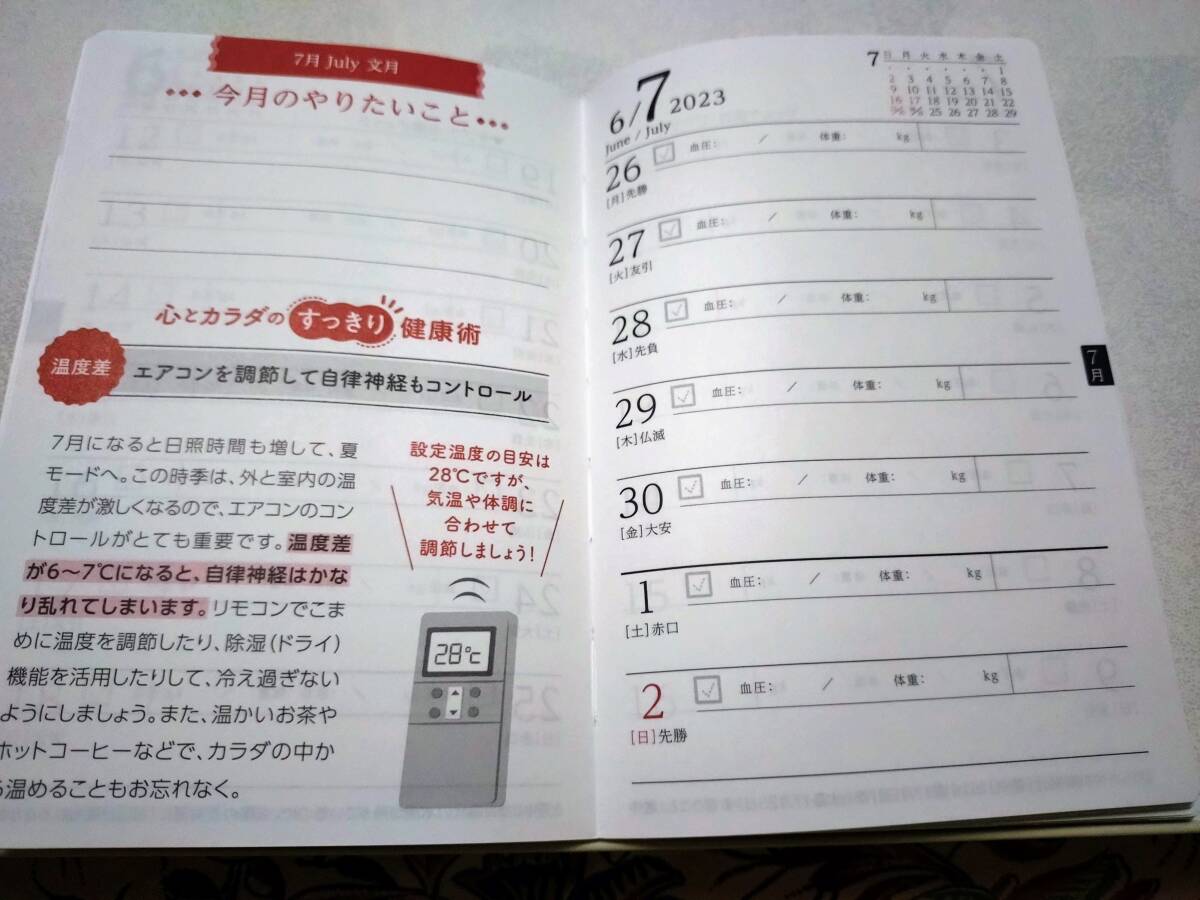 7月 July 文月
••• 今月のやりたいこと •••
心とカラダの すっきり 健康術
温度差
エアコンを調節して自律神経もコントロール
7月になると日照時間も増して、夏
モードへ。この時季は、外と室内の温
度差が激しくなるので、エアコンのコン
トロールがとても重要です。温度差
が6〜7℃になると、自律神経はかな
り乱れてしまいます。リモコンでこま
めに温度を調節したり、除湿(ドライ)
機能を活用したりして、冷え過ぎない
ようにしましょう。また、温かいお茶や
ホットコーヒーなどで、カラダの中か
ら温めることもお忘れなく。
設定温度の目安は
28℃ですが、
気温や体調に
合わせて
調節しましょう!
28℃
6/7 2023
June / July
7
日 月 火 水 木 金 土
1
2 3 4 5 6 7 8
9 10 11 12 13 14 15
16 17 18 19 20 21 22
23/30 24/31 25 26 27 28 29
26 血圧: / 体重: kg
[月]先勝
27 血圧: / 体重: kg
[火]友引
28 血圧: / 体重: kg
[水]先負
29 血圧: / 体重: kg
[木]仏滅
30 血圧: / 体重: kg
[金]大安
1 血圧: / 体重: kg
[土]赤口
2 血圧: / 体重: kg
[日]先勝
7月